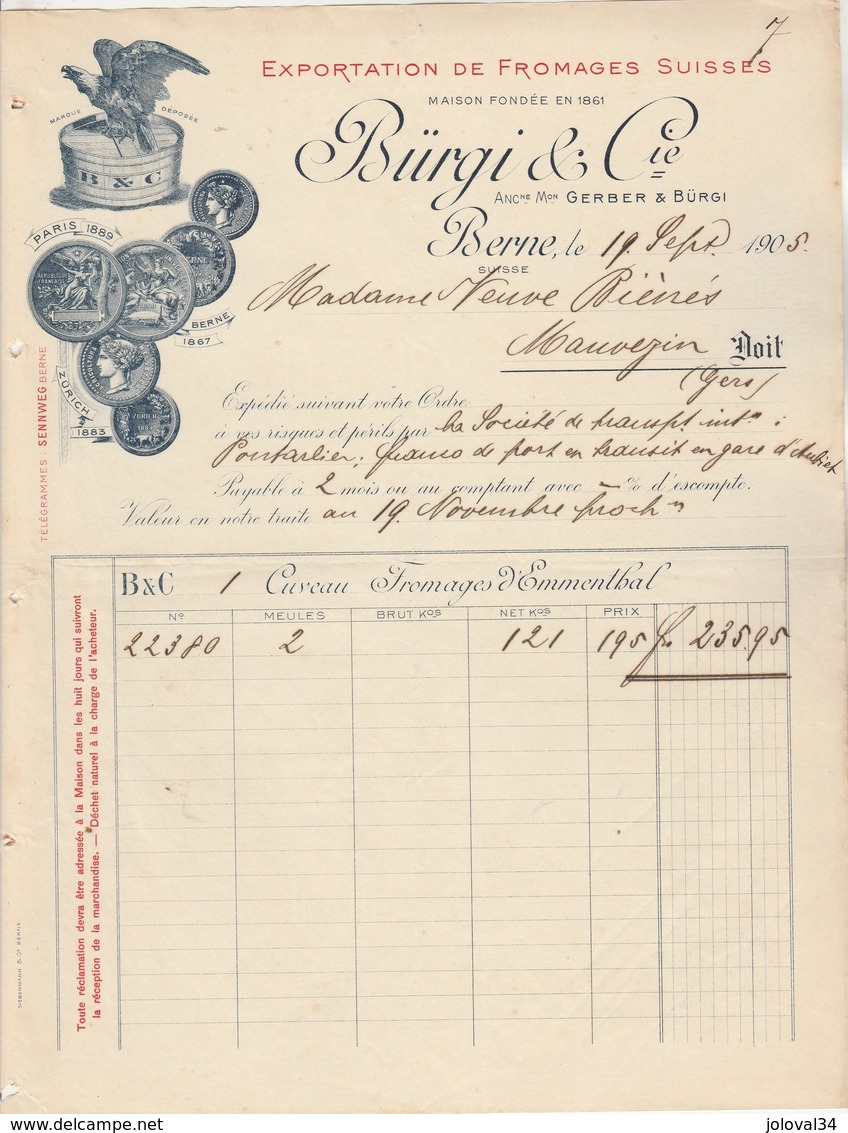 7
EXPORTATION DE FROMAGES SUISSES
MAISON FONDÉE EN 1861
Bürgi & Cie
ANCNE MON GERBER & BÜRGI
Berne, le 19. Sept. 1905.
SUISSE
MARQUE DÉPOSÉE
B & C
PARIS 1889
RÉPUBLIQUE FRANÇAISE
BERNE
BERNE
1867
ZÜRICH
1883
ZÜRICH
TÉLÉGRAMMES: SENNWEG BERNE
Madame Veuve
Mauvezin Doit
(Gers)
Expédié suivant votre Ordre
à vos risques et périls par la Société de transpt. intn :
Pontarlier; franco de port en transit en gare d'Aubiet
Payable à 2 mois ou au comptant avec — % d'escompte.
Valeur en notre traite au 19. Novembre proch n
B&C 1 Cuveau Fromages d'Emmenthal
No MEULES BRUT Kos NET Kos PRIX
22380 2 121 195 frs 235.95
Toute réclamation devra être adressée à la Maison dans les huit jours qui suivront
la réception de la marchandise. — Déchet naturel à la charge de l'acheteur.
SIEBENMANN & Co BERNE
www.delcampe.net
joloval34